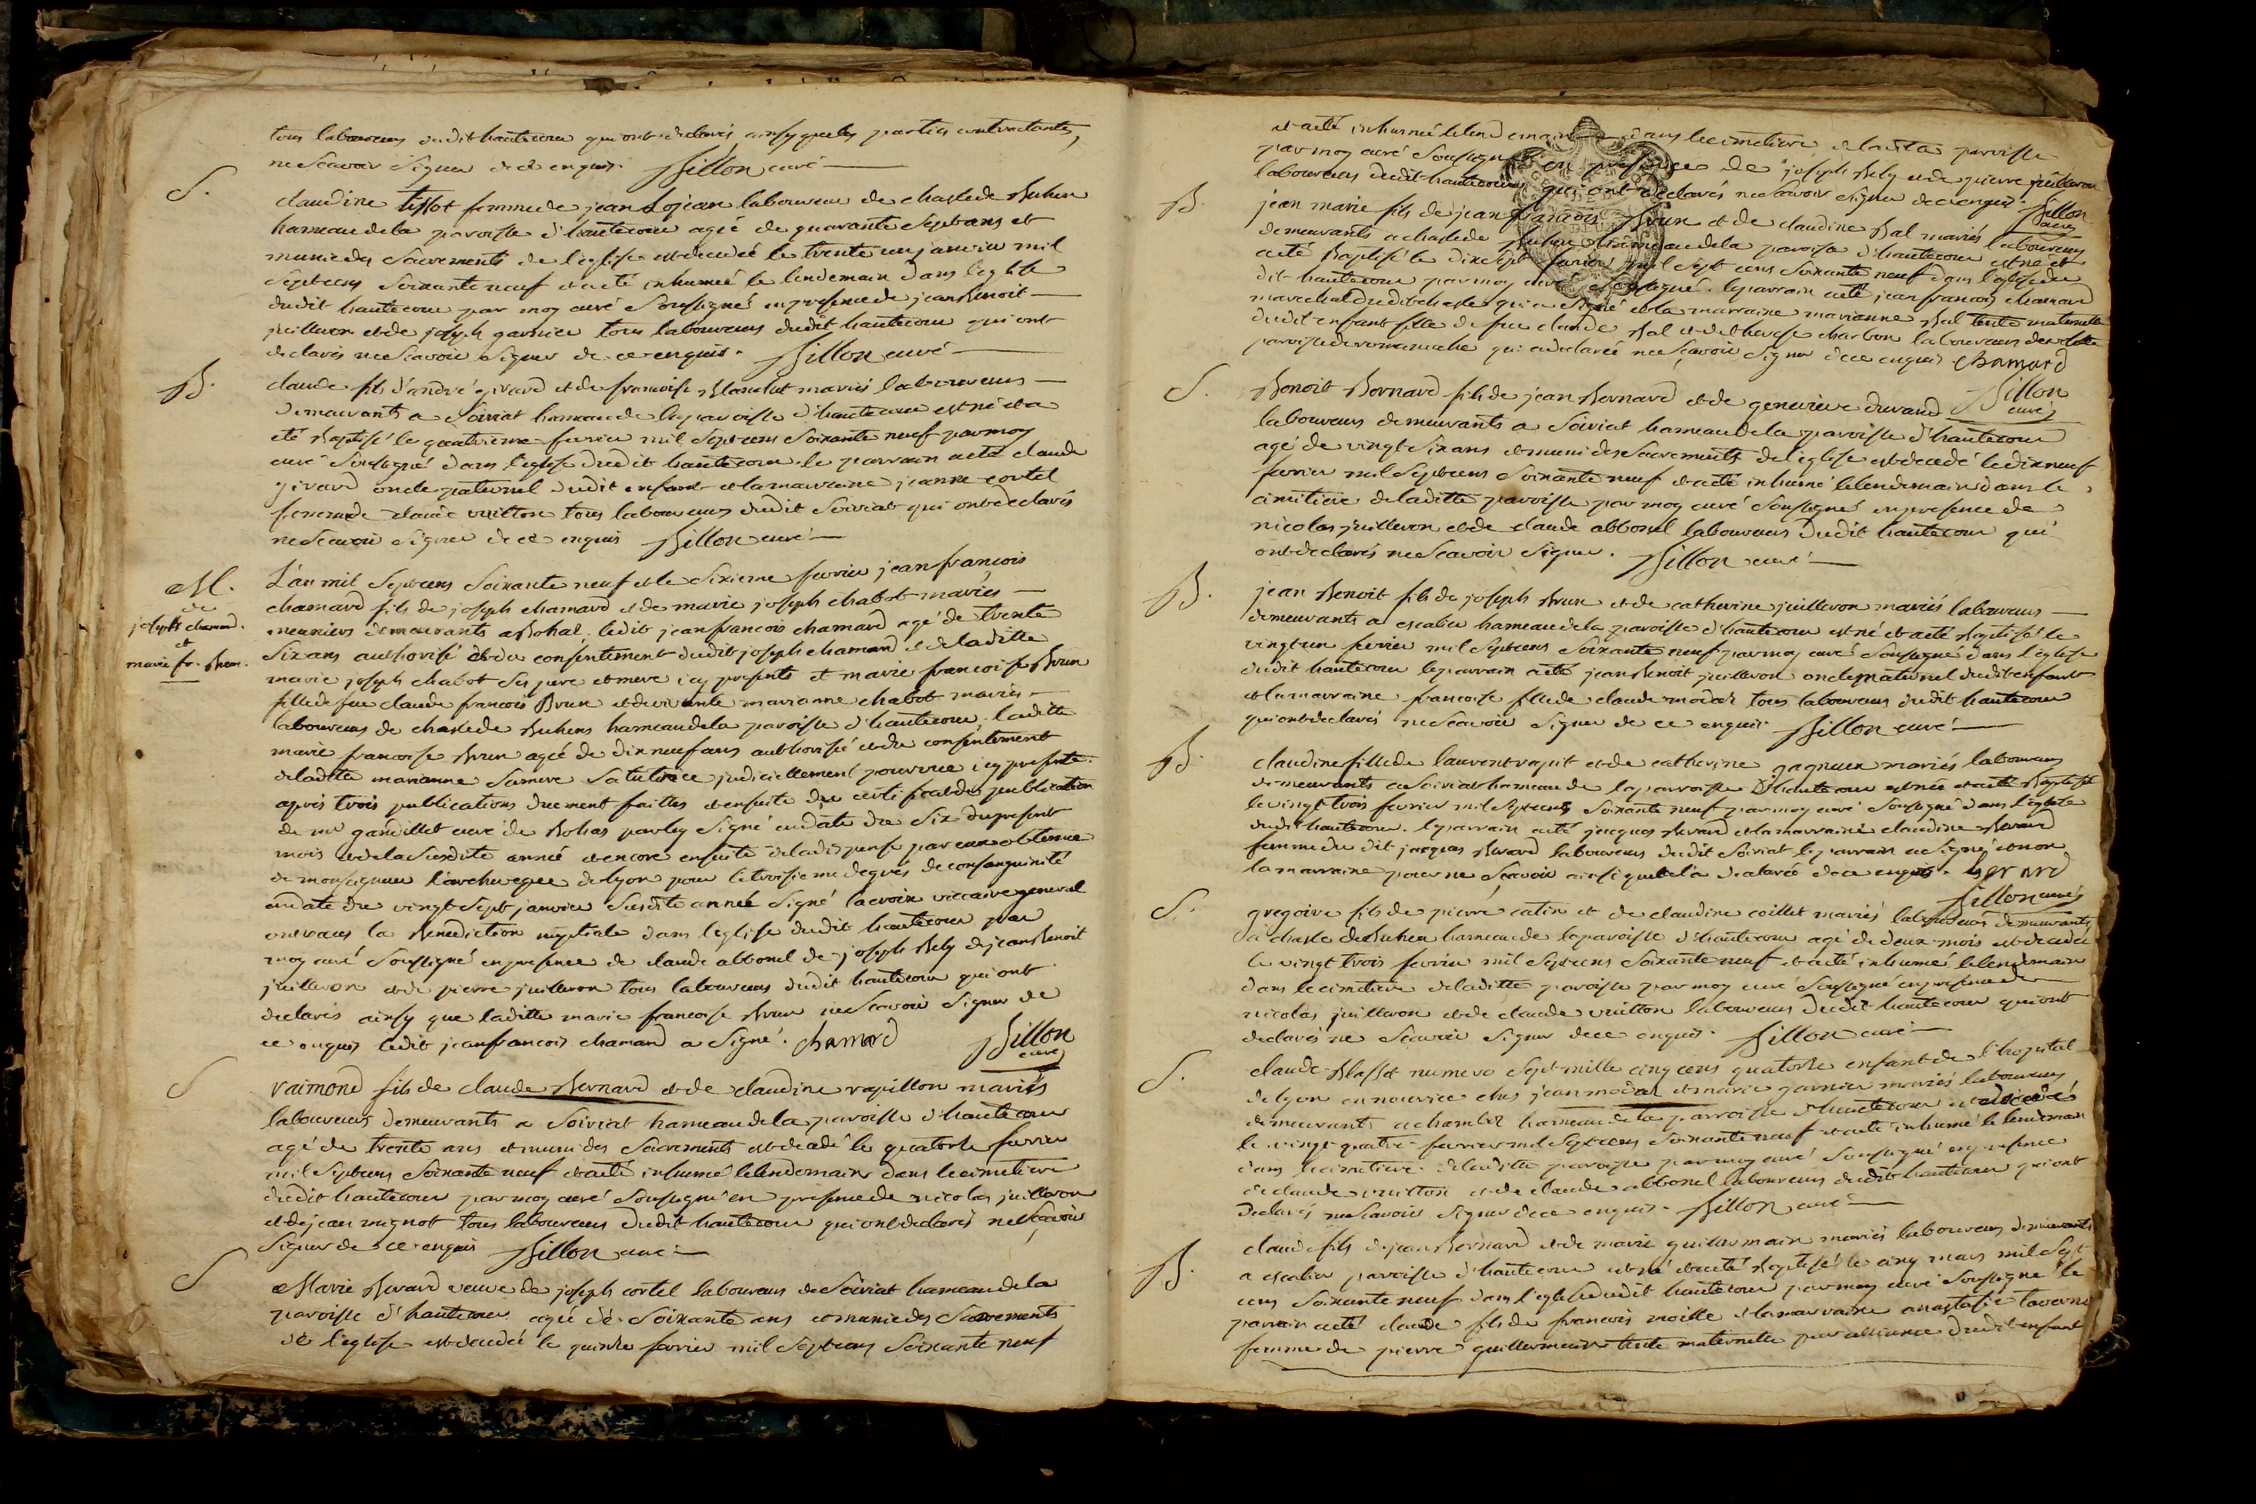 tous laboureurs dudit hautecour qui ont declarés ainsy que les parties contractantes,
ne scavoir signer de ce enquis. Billon curé
S.
claudine tissot femme de jean Lojean laboureur de chasle de Buhen
hameau de la paroisse d'hautecour agée de quarante sept ans et
munie des sacrements de l'eglise est decedée le trente un janvier mil
sept cens soixante neuf et a eté inhumée le lendemain dans l'eglise
dudit hautecour par moy curé soussigné en presence de jean Benoit
juilleron et de joseph garnier tous laboureurs dudit hautecour qui ont
declarés ne scavoir signer de ce enquis. Billon curé
B.
claude fils d'andré girard et de francoise Blanchet mariés laboureurs
demeurants a Soiriat hameau de la paroisse d'hautecour est né et a
eté Baptisé le quatrieme fevrier mil sept cens soixante neuf par moy
curé soussigné dans l'eglise dudit hautecour. le parrain a eté claude
girard oncle paternel dudit enfant et la marraine jeanne cortel
femme de claude vuitton tous laboureurs dudit Soiriat qui ont declarés
ne scavoir signer de ce enquis Billon curé
M.
de
joseph chamard.
et
marie fr. Brun.
L'an mil sept cens soixante neuf et le sixieme fevrier jean francois
chamard fils de joseph chamard et de marie joseph chabot mariés
meuniers demeurants a Bohas. ledit jean francois chamard agé de trente
six ans authorisé et du consentement dudit joseph chamard et de laditte
marie joseph chabot ses pere et mere icy presents et marie francoise Brun
fille de feu claude francois Brun et de vivante marianne chabot mariés
laboureurs de chasle de Buhens hameau de la paroisse d'hautecour. laditte
marie francoise Brun agée de dix neuf ans authorisée et du consentement
de laditte marianne sa mere sa tutrice judiciellement pourvue icy presente.
apres trois publications duement faittes et ensuite du certificat des publication
de mr gandillet curé de Bohas par luy signé en date du six du present
mois et de la susditte année et encore ensuite de la dispense par eux obtenue
de monseigneur l'archeveque de lyon pour le troisieme degrés de consanguinité
en date du vingt sept janvier susdite année signé lacroix viccaire general
ont recus la Benediction nuptiale dans l'eglise dudit hautecour par
moy curé soussigné en presence de claude abbonel de joseph Bely de jean Benoit
juilleron et de pierre juilleron tous laboureurs dudit hautecour qui ont
declarés ainsy que laditte marie francoise Brun ne scavoir signer de
ce enquis ledit jean francois chamard a signé. chamard Billon
curé
S
raimond fils de claude Bernard et de claudine rapillon mariés
laboureurs demeurants a Soiriat hameau de la paroisse d'hautecour
agé de trente ans et muni des sacrements est decedé le quatorse fevrier
mil sept cens soixante neuf et a eté inhumé le lendemain dans le cimetiere
dudit hautecour par moy curé soussigné en presence de nicolas juilleron
et de jean mignot tous laboureurs dudit hautecour qui ont declarés ne scavoir
signer de ce enquis Billon curé
S
Marie Berard veuve de joseph cortel laboureurs de Soiriat hameau de la
paroisse d'hautecour agée de soixante ans et munie des sacrements
de l'eglise est decedée le quinse fevrier mil sept cens soixante neuf
et a eté inhumée le lendemain dans le cimetiere de laditte paroisse
par moy curé soussigné en presence de joseph Bely et de pierre juilleron
laboureurs dudit hautecour qui ont declarés ne scavoir signer de ce enquis. Billon
curé
B.
jean marie fils de jean francois Brun et de claudine Bal mariés laboureurs
demeurants a chasle de Buhen hameau de la paroisse d'hautecour est né et
a eté Baptisé le dix sept fevrier mil sept cens soixante neuf dans l'eglise du
dit hautecour par moy curé soussigné. le parrain a eté jean francois chamard
marechal dudit chasle qui a signé et la marraine marianne Bal tante maternelle
dudit enfant fille de feu claude Bal et de therese charbon laboureurs de
paroisse de romaneche qui a declarée ne scavoir signer de ce enquis chamard
Billon
curé
S.
Benoit Bernard fils de jean Bernard et de genevieve durand
laboureurs demeurants a Soiriat hameau de la paroisse d'hautecour
agé de vingt six ans et muni des sacrements de l'eglise est decedé le dix neuf
fevrier mil sept cens soixante neuf et a eté inhumé le lendemain dans le
cimetiere de laditte paroisse par moy curé soussigné en presence de
nicolas juilleron et de claude abbonel laboureurs dudit hautecour qui
ont declarés ne scavoir signer. Billon curé
B.
jean Benoit fils de joseph Brun et de catherine juilleron mariés laboureurs
demeurants a escalier hameau de la paroisse d'hautecour est né et a eté Baptisé le
vingt un fevrier mil sept cens soixante neuf par moy curé soussigné dans l'eglise
dudit hautecour le parrain a eté jean Benoit juilleron oncle maternel dudit enfant
et la marraine francoise fille de claude modas tous laboureurs dudit hautecour
qui ont declarés ne scavoir signer de ce enquis. Billon curé
B.
claudine fille de laurent rapit et de catherine gagneux mariés laboureurs
demeurants a Soiriat hameau de la paroisse d'hautecour est née et a eté Baptisée
le vingt trois fevrier mil sept cens soixante neuf par moy curé soussigné dans l'eglise
dudit hautecour. le parrain a eté jacques Berard et la marraine claudine Berard
femme du dit jacques Berard laboureurs dudit Soiriat le parrain a signé et non
la marraine pour ne scavoir ainsi quelle l'a declarée de ce enquis. berard
Billon curé
S.
gregoire fils de pierre catin et de claudine coillet mariés laboureurs demeurants
a chasle de Buhen hameau de la paroisse d'hautecour agé de deux mois est decedé
le vingt trois fevrier mil sept cens soixante neuf et a eté inhumé le lendemain
dans le cimetiere de laditte paroisse par moy curé soussigné en presence de
nicolas juilleron et de claude vuitton laboureurs dudit hautecour qui ont
declarés ne scavoir signer de ce enquis. Billon curé
S.
claude Blasset numero sept mille cinq cens quatorse enfant de l'hopital
de lyon en nourrice chés jean modas et marie garnier mariés laboureurs
demeurants a chambod hameau de la paroisse d'hautecour est decedé
le vingt quatre fevrier mil sept cens soixante neuf et a eté inhumé le lendemain
dans le cimetiere de laditte paroisse par moy curé soussigné en presence
de claude vuitton et de claude abbonel laboureurs dudit hautecour qui ont
declarés ne scavoir signer de ce enquis. Billon curé
B.
claude fils de jean Bernard et de marie guillermain mariés laboureurs demeurants
a escalier paroisse d'hautecour est né et a eté Baptisé le cinq mars mil sept
cens soixante neuf dans l'eglise dudit hautecour par moy curé soussigné le
parrain a eté claude fils de francois moille et la marraine anastasie taverne
femme de pierre guillermain tante maternelle par alliance dudit enfant